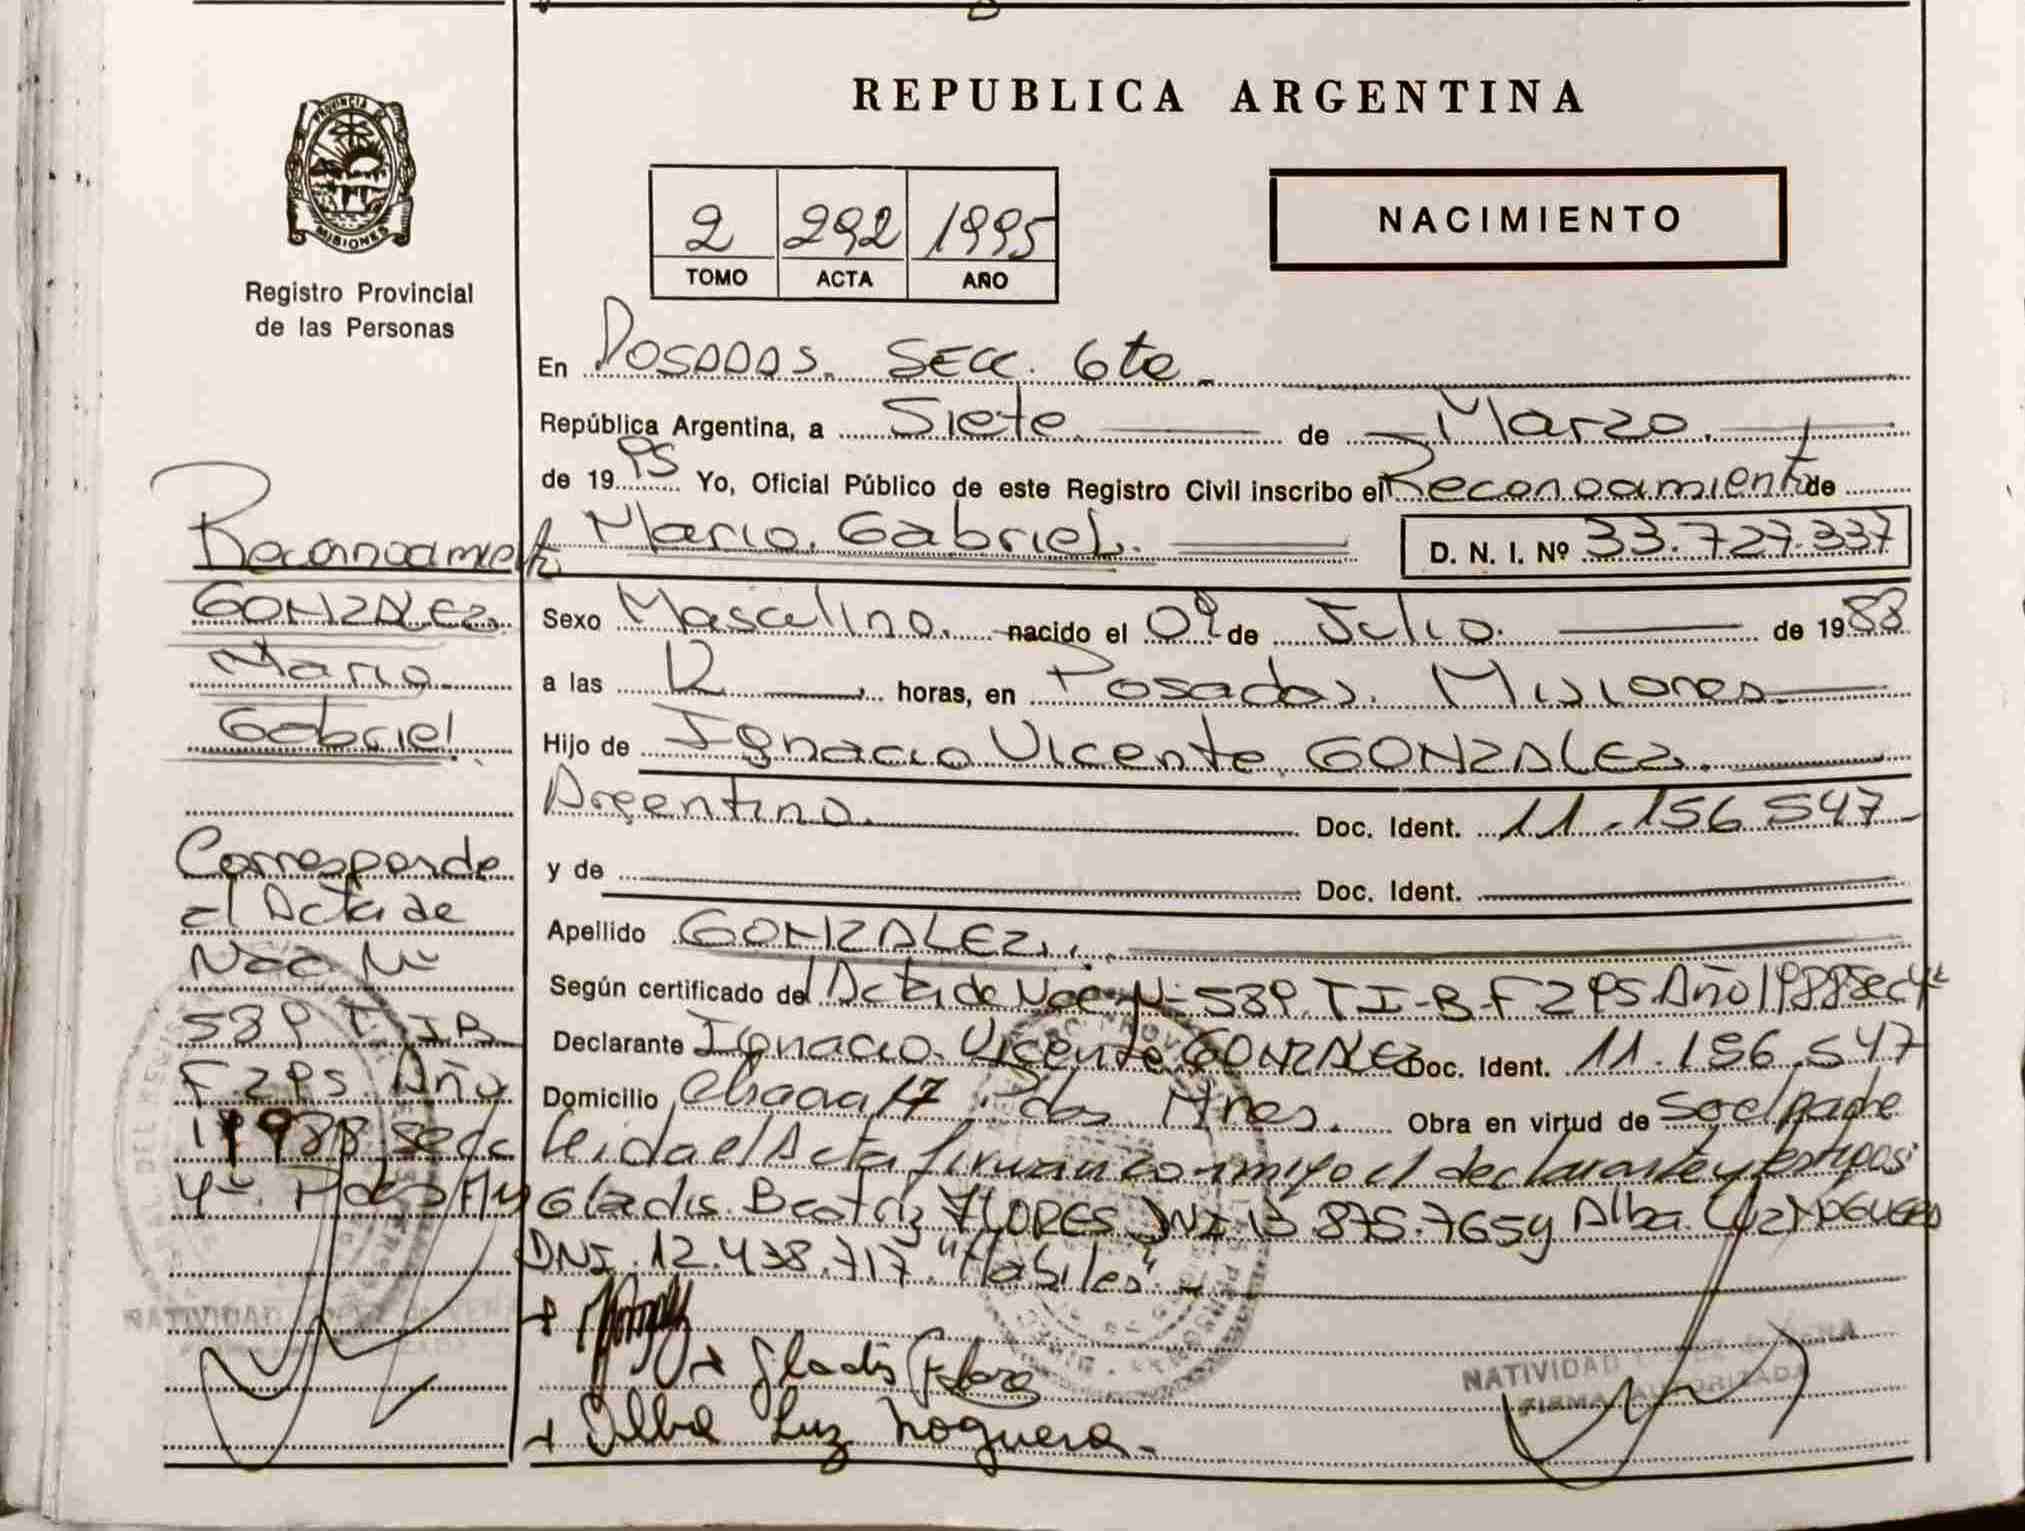 REPUBLICA ARGENTINA
PROVINCIA DE
MISIONES
Registro Provincial
de las Personas
2 292 1995
TOMO ACTA AÑO
NACIMIENTO
En Posadas. Secc. 6ta
República Argentina, a Siete de Marzo
de 1995 Yo, Oficial Público de este Registro Civil inscribo el Reconocimiento de
Mario Gabriel. D. N. I. Nº 33.727.337
Sexo Masculino. nacido el de Julio de 1988
a las 12 horas, en Posadas. Misiones
Hijo de Ignacio Vicente GONZALEZ.
Argentino. Doc. Ident. 11.156.547
y de Doc. Ident.
Apellido GONZALEZ.
Según certificado del Acta de Nac Nº 589. T I-B-F 295 Año 1988 Sec 4ª
Declarante Ignacio Vicente GONZALEZ Doc. Ident. 11.156.547
Domicilio Chacra 17 Pdas Mnes. Obra en virtud de Ser el padre
Leida el Acta firman conmigo el declarante y testigos:
Gladis Beatriz FLORES DNI 13.875.765 y Alba Luz NOGUERA
DNI. 12.438.717. "Habiles"
Gladis Flores
Alba Luz Noguera
NATIVIDAD
FIRMA AUTORIZADA
Reconocimiento
GONZALEZ
Mario
Gabriel
Corresponde
el Acta de
Nac Nº
589 T I B
F 295 Año
1988 Secc
4ª Pdas Mnes
NATIVIDAD